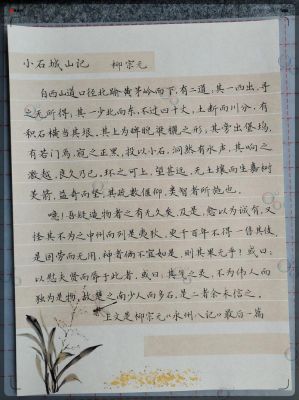 小石城山记 柳宗元
自西山道口径北，踰黄茅岭而下，有二道，其一西出，寻
之无所得，其一少北而东，不过四十丈，土断而川分，有
积石横当其垠，其上为睥睨、梁欐之形，其旁出堡坞，
有若门焉，窥之正黑，投以小石，洞然有水声，其响之
激越，良久乃已，环之可上，望甚远，无土壤而生嘉树
美箭，益奇而坚，其疏数偃仰，类智者所施也。
噫！吾疑造物者之有无久矣，及是，愈以为诚有，又
怪其不为之中州而列是夷狄，更千百年不得一售其伎，
是固劳而无用，神者倘不宜如是，则其果无乎？或曰：
以慰夫贤而辱于此者，或曰：其气之灵，不为伟人，而
独为是物，故楚之南少人而多石，是二者余未信之。
上文是柳宗元《永州八记》最后一篇